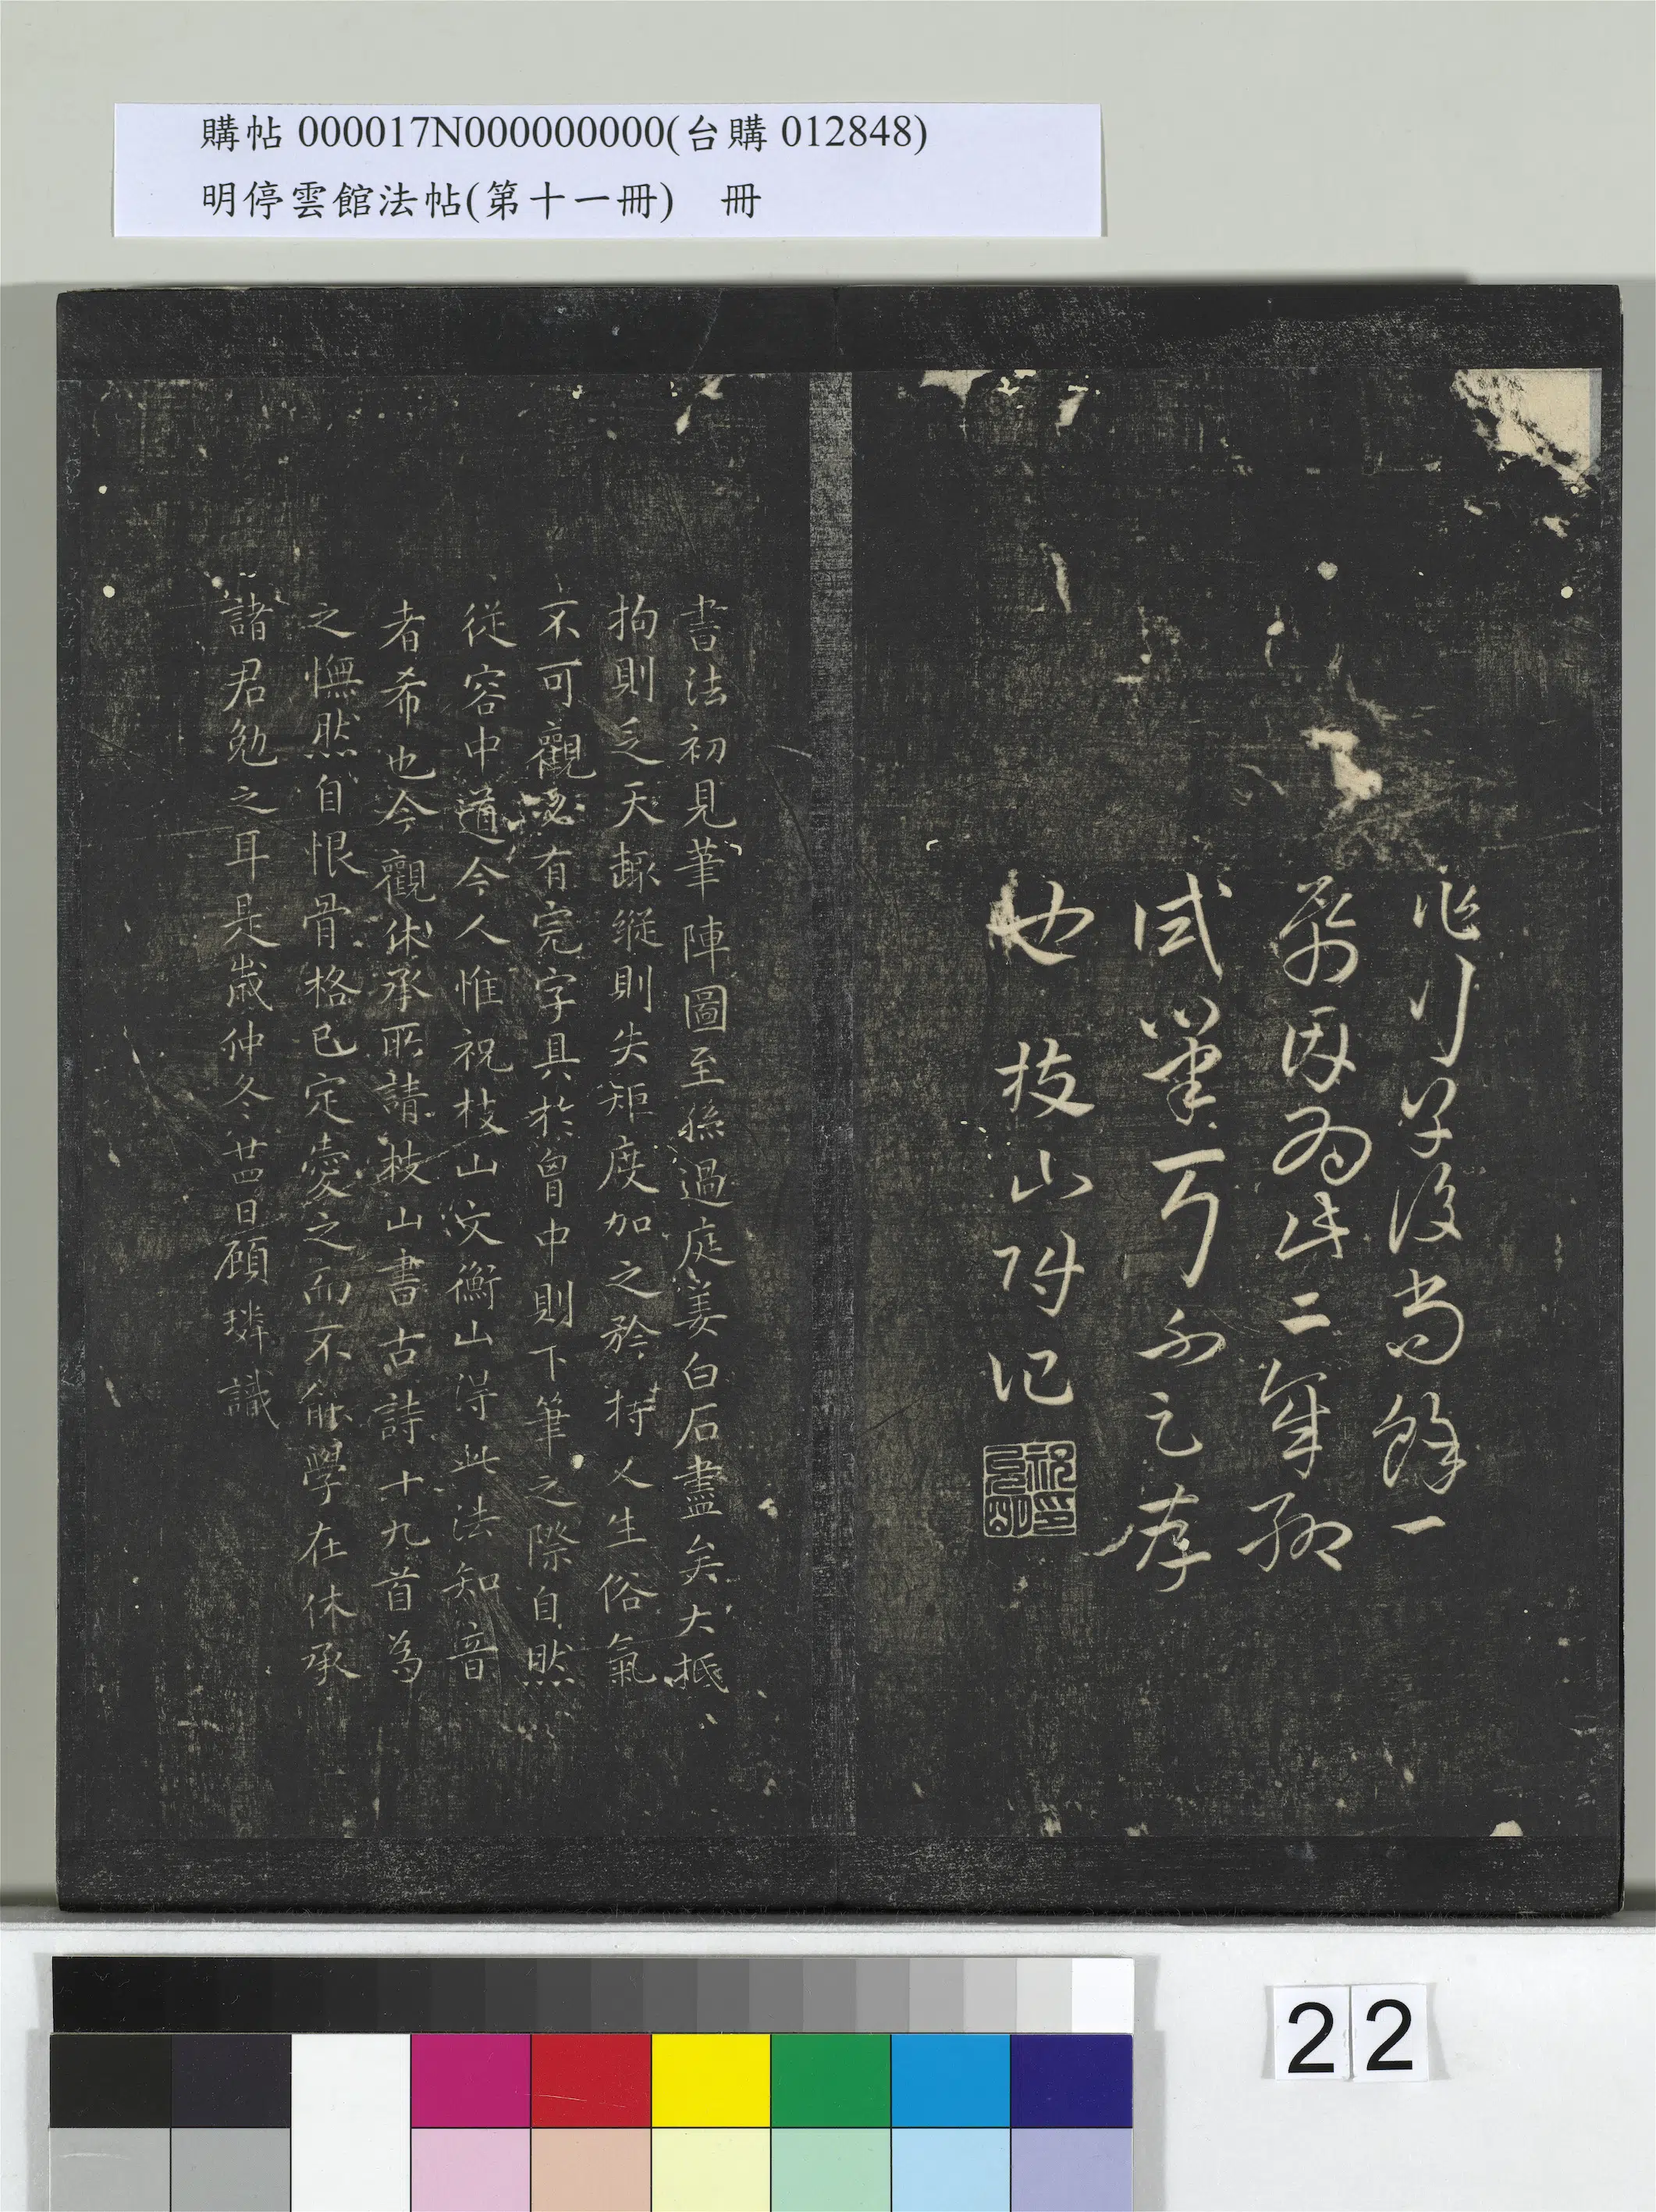 購帖 000017N000000000(台購 012848)
明停雲館法帖(第十一冊)　冊
作行草後尚餘一
紙因為此二章聊
試筆耳不足存
也 枝山附記
書法初見筆陣圖至孫過庭姜白石盡矣大抵
拘則乏天趣縱則失矩度加之矜持乂生俗氣
不可觀必有完字具於胷中則下筆之際自然
從容中道今人惟祝枝山文衡山得此法知音
者希也今觀休承所請枝山書古詩十九首為
之憮然自恨骨格已定愛之而不能學在休承
諸君勉之耳是歲仲冬廿四日顧璘識
22